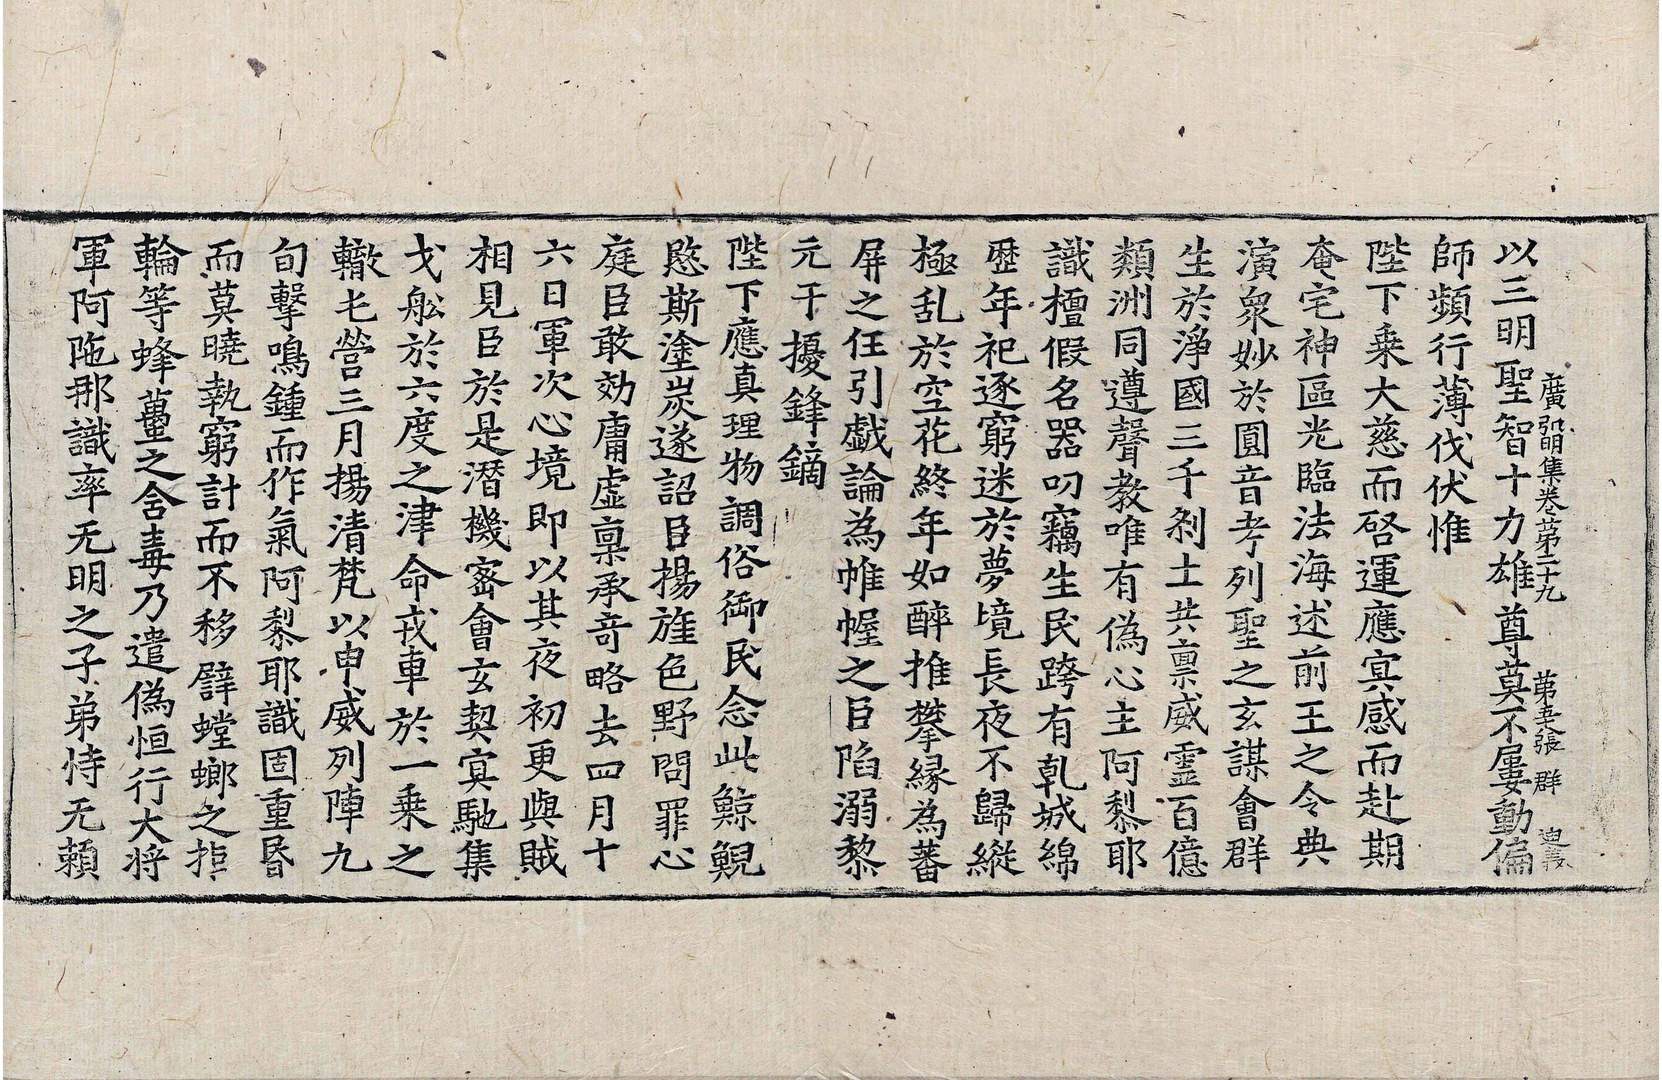 廣弘明集卷苐二十九 苐五張 群 迪義
以三明聖智十力雄尊莫不屢動偏
師頻行薄伐伏惟
陛下乗大慈而啓運應㝠感而赴期
奄宅神區光臨法海述前王之令典
演衆妙於圓音考列聖之玄謀會群
生於淨國三千刹土共禀威靈百億
類洲同遵聲教唯有偽心主阿黎耶
識檀假名器叨竊生民跨有乹城綿
歷年祀逐窮迷於夢境長夜不歸縱
極乱於空花終年如醉推攀縁為蕃
屏之任引戯論為帷幄之臣陷溺黎
元干擾鋒鏑
陛下應真理物調俗御民念此鯨鯢
愍斯塗炭遂詔臣揚旌色野問罪心
庭臣敢効庸虛禀承竒略去四月十
六日軍次心境即以其夜初更與賊
相見臣於是潜機密會玄契㝠馳集
戈舩於六度之津命戎車於一乗之
轍屯營三月揚清梵以申威列陣九
旬擊鳴鍾而作氣阿黎耶識固重昬
而莫曉執窮計而不移譬螳螂之拒
輪等蜂蠆之含毒乃遣偽恒行大将
軍阿陁那識率无明之子弟恃无頼